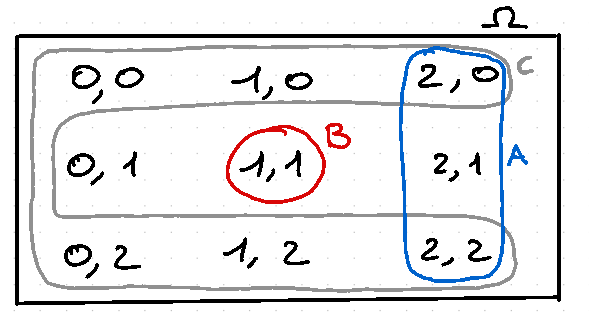 Ω
0,0 1,0 2,0 C
0,1 1,1 B 2,1 A
0,2 1,2 2,2